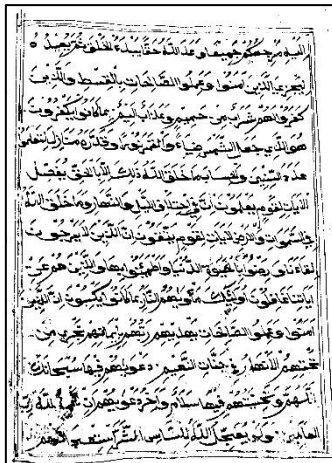 اليه مرجعكم جميعا وعد الله حقا انه يبدؤ الخلق ثم يعيده
ليجزي الذين امنوا وعملوا الصالحات بالقسط والذين
كفروا لهم شراب من حميم وعذاب اليم بما كانوا يكفرون
هو الذي جعل الشمس ضياء والقمر نورا وقدره منازل لتعلموا
عدد السنين والحساب ما خلق الله ذلك الا بالحق يفصل
الايات لقوم يعلمون ان في اختلاف الليل والنهار وما خلق الله
في السموات والارض لايات لقوم يتقون ان الذين لا يرجون
لقاءنا ورضوا بالحيوة الدنيا واطمأنوا بها والذين هم عن
اياتنا غافلون اولئك مأويهم النار بما كانوا يكسبون ان الذين
امنوا وعملوا الصالحات يهديهم ربهم بايمانهم تجري من
تحتهم الانهار في جنات النعيم دعويهم فيها سبحانك
اللهم وتحيتهم فيها سلام واخر دعويهم ان الحمد لله رب
العالمين ولو يعجل الله للناس الشر استعجالهم